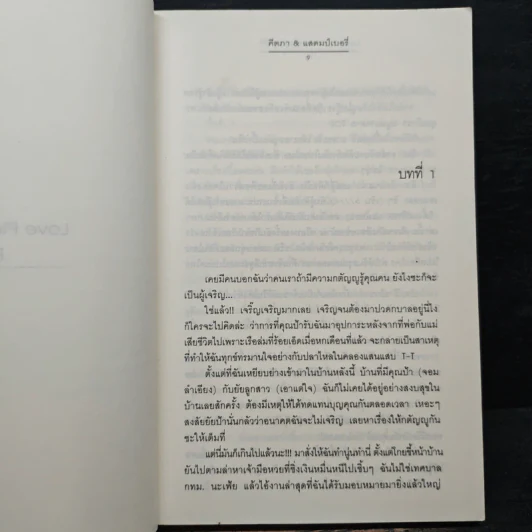 คีตภา & แสตมป์เบอรี่
บทที่ 1
เคยมีคนบอกฉันว่าคนเราถ้ามีความกตัญญูรู้คุณคน ยังไงซะก็จะ
เป็นผู้เจริญ...
ใช่แล้ว!! เจริ๊ญเจริญมากเลย เจริญจนต้องมาปวดกบาลอยู่นี่ไง
ก็ใครจะไปคิดล่ะ ว่าการที่คุณป้ารับฉันมาอุปการะหลังจากที่พ่อกับแม่
เสียชีวิตไปเพราะเรือล่มที่ร้อยเอ็ดเมื่อหกเดือนที่แล้ว จะกลายเป็นสาเหตุ
ที่ทำให้ฉันทุกข์ทรมานใจอย่างกับปลาไหลในคลองแสนแสบ T-T
ตั้งแต่ที่ฉันเหยียบย่างเข้ามาในบ้านหลังนี้ บ้านที่มีคุณป้า (จอม
ลำเอียง) กับยัยลูกสาว (เอาแต่ใจ) ฉันก็ไม่เคยได้อยู่อย่างสงบสุขใน
บ้านเลยสักครั้ง ต้องมีเหตุให้ได้ทดแทนบุญคุณกันตลอดเวลา เหอะๆ
สงสัยยัยป้านั่นกลัวว่าอนาคตฉันจะไม่เจริญ เลยหาเรื่องให้กตัญญูกัน
ซะให้เต็มที่
แต่นี่มันก็เกินไปแล้วนะ!!! มาสั่งให้ฉันทำนู่นทำนี่ ตั้งแต่โกยขี้หน้าบ้าน
ยันไปตามล่าหาเจ้ามือหวยที่ชิ่งเงินหมื่นหนีไปเชิบๆ ฉันไม่ใช่เทศบาล
กทม. นะเฟ้ย แล้วไอ้งานล่าสุดที่ฉันได้รับมอบหมายมายิ่งแล้วใหญ่
Love